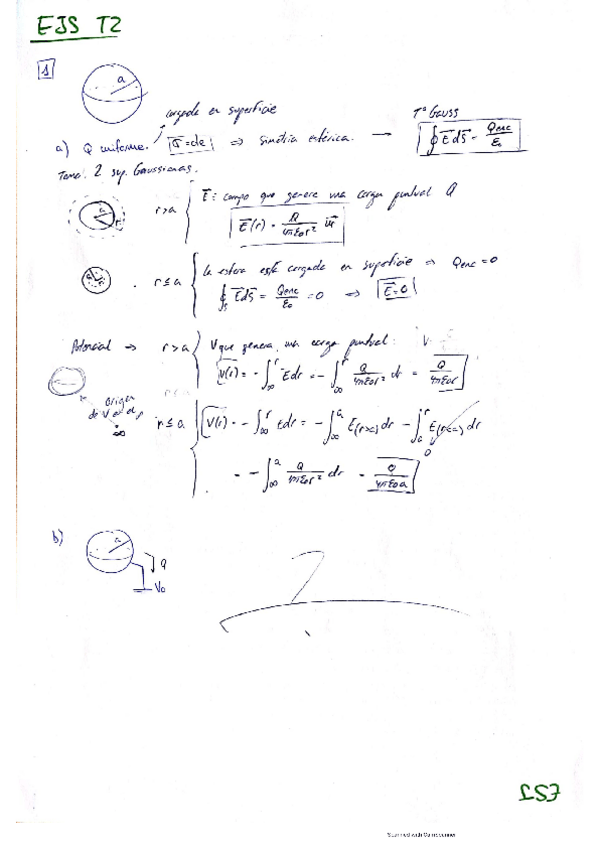 EJS T2
1
a
cargada en superficie
a) Q uniforme. σ=cte ⇒ simetría esférica. → Tª Gauss ∮ E⃗ dS⃗ = Qenc/ε₀
Tomo: 2 sup. Gaussianas.
r>a { E⃗: campo que genera una carga puntual Q
E⃗(r) = Q/4πε₀r² u⃗r
r≤a { la esfera está cargada en superficie ⇒ Qenc = 0
∮s E⃗ dS⃗ = Qenc/ε₀ = 0 ⇒ E⃗=0
Potencial ⇒ r>a { V que genera una carga puntual:
V(r) = - ∫∞^r E dr = - ∫∞^r Q/4πε₀r² dr = Q/4πε₀r
origen
de V en ∞
r≤a { V(r) = - ∫∞^r E dr = - ∫∞^a E(r>a) dr - ∫a^r E(r<a) dr
0
= - ∫∞^a Q/4πε₀r² dr = Q/4πε₀a
b) a
Q
V₀
?
LSJ
Scanned with CamScanner